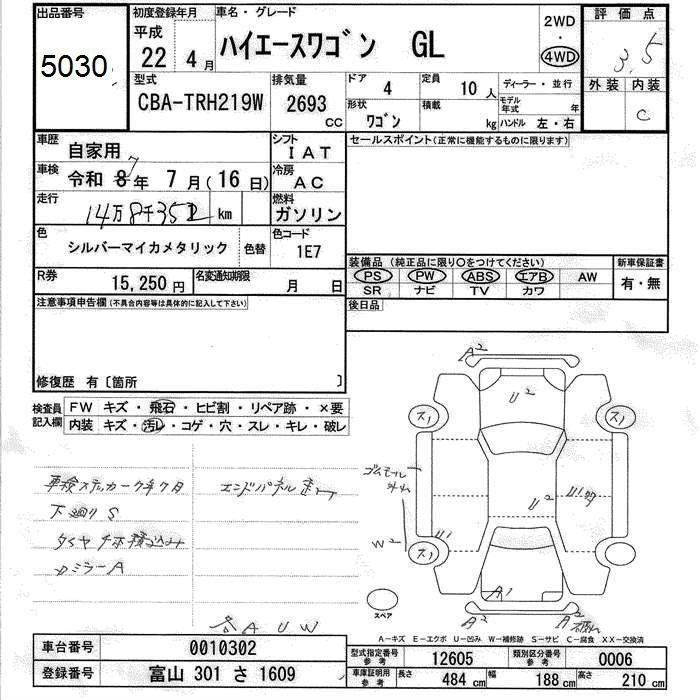 出品番号 初度登録年月 車名・グレード 2WD 評価点
5030 平成 22年 4月 ハイエースワゴン GL ・ 4WD 3.5
型式 排気量 ドア 4 定員 10人 ディーラー・並行 外装 内装
CBA-TRH219W 2693 cc 形状 ワゴン 積載 kg モデル年式 年 ハンドル 左・右 C
車歴 自家用 シフト IAT セールスポイント(正常に機能するものに限ります)
車検 令和 8年 7 7月(16日) 冷房 AC
走行 14万8千352 km 燃料 ガソリン
色 シルバーマイカメタリック 色替 色コード 1E7
装備品(純正品に限り○をつけてください) 新車保証書
R券 15,250円 名変通知期限 月 日 PS PW ABS エアB AW 有・無
SR ナビ TV カワ
注意事項申告欄(不具合内容等は具体的に記入して下さい) 後日品
修復歴 有〔箇所 〕
検査員記入欄 FW キズ・飛石・ヒビ割・リペア跡・×要
内装 キズ・汚レ・コゲ・穴・スレ・キレ・破レ
A2
U2
ス1 ス1
車検ステッカー7年7月
ゴムモール
下廻りS U2
W2 U1
ス1
ミラーA
A1
スペア A2
各AUW
A-キズ E-エクボ U-凹み W-補修跡 S-サビ C-腐食 XX-交換済
車台番号 0010302 型式指定番号 参考 12605 類別区分番号 参考 0006
登録番号 富山 301 さ 1609 車庫証明用 参考 長さ 484 cm 幅 188 cm 高さ 210 cm